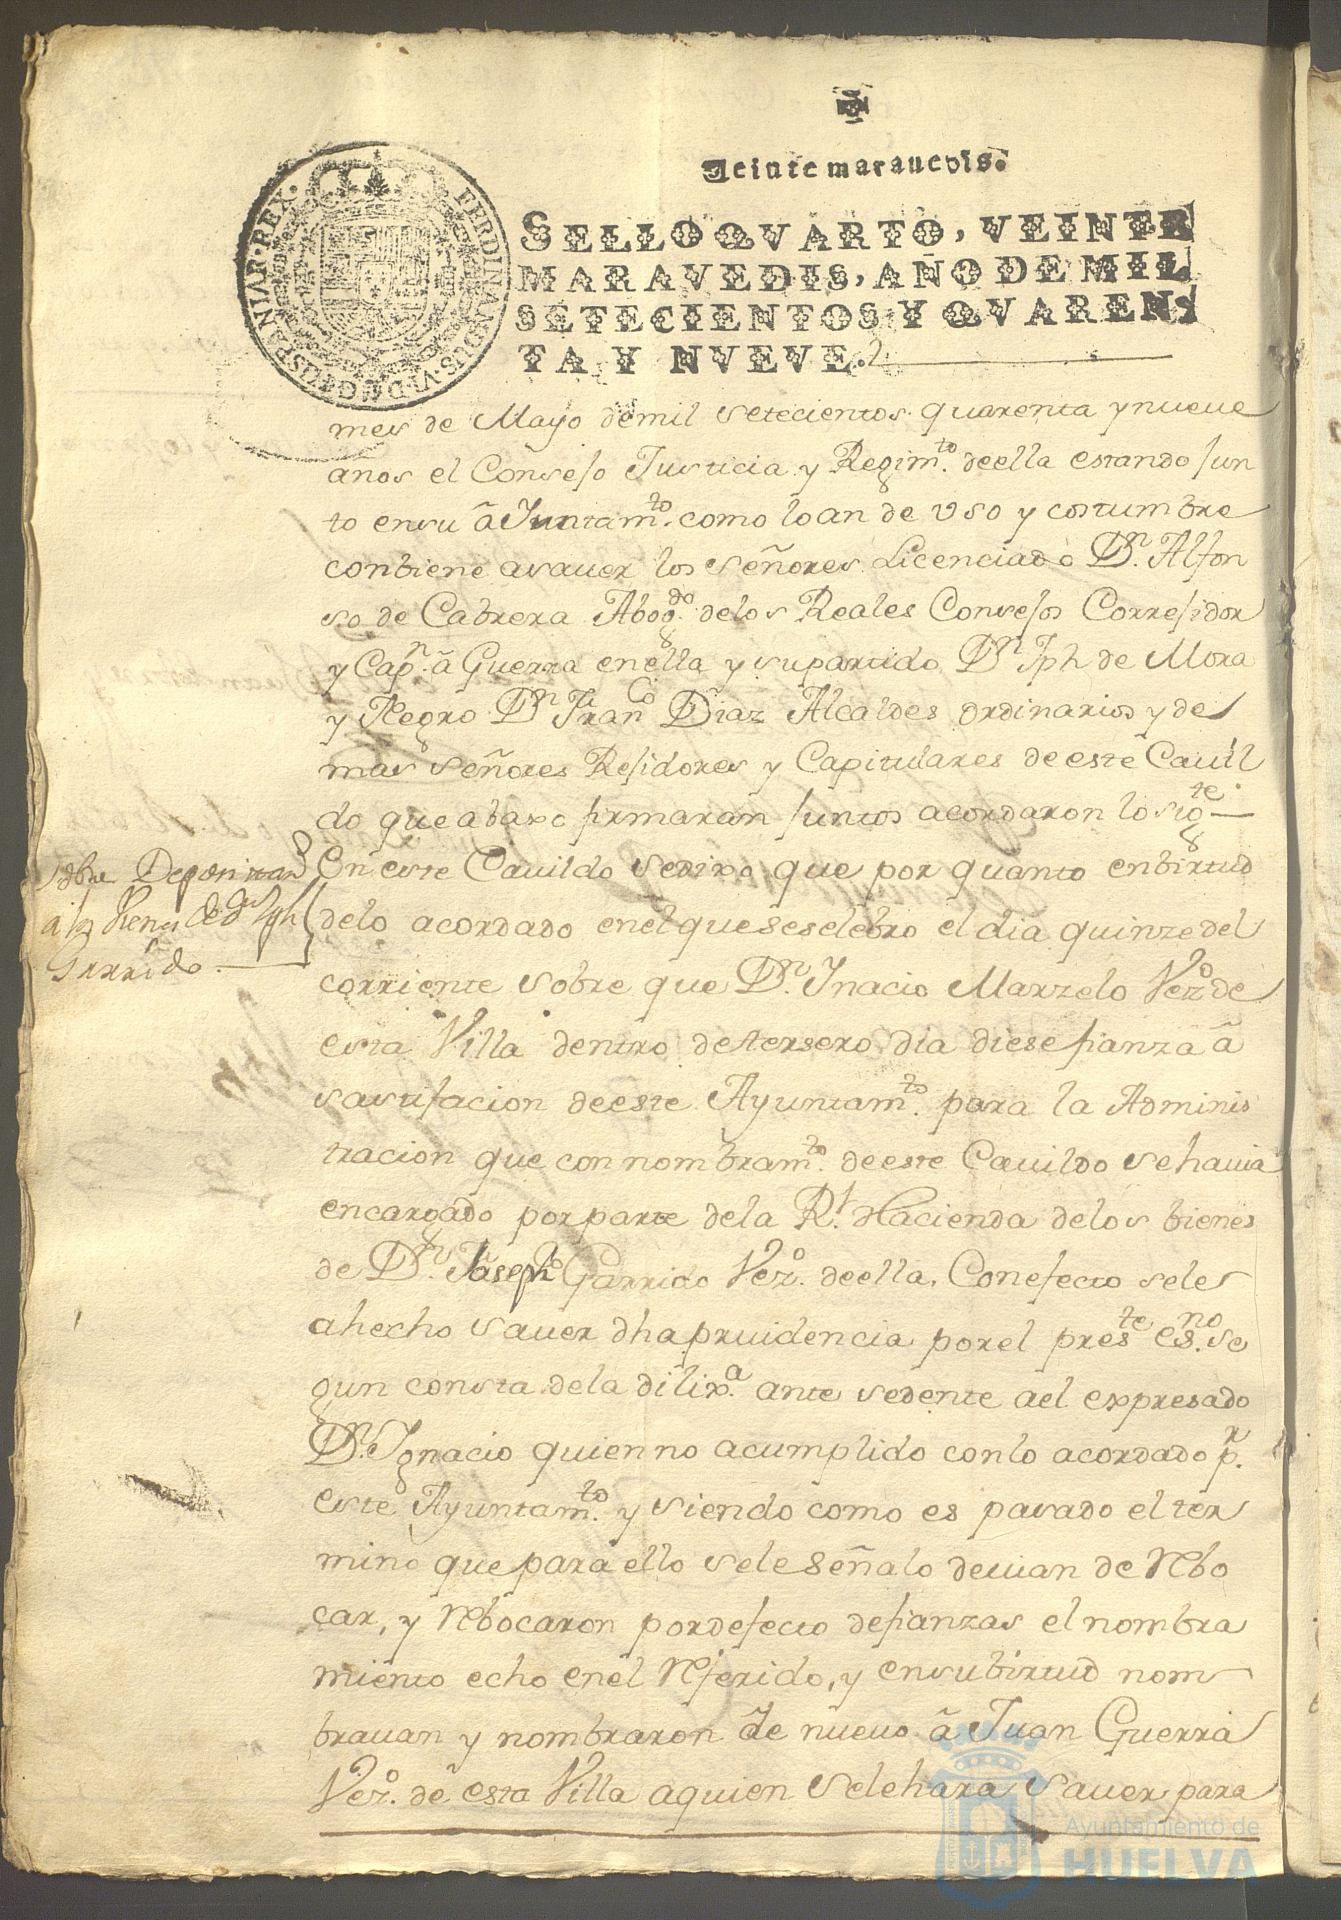 Veinte marauedis.
SELLO QVARTO, VEINTE
MARAVEDIS, AÑO DE MIL
SETECIENTOS Y QVAREN-
TA Y NVEVE.
FERDINANDUS·VI·D·G·HISPANIAR·REX·
mes de Mayo demil setecientos quarenta ynueue
anos el Consejo Justicia y Regimto. deella estando jun
to ensu ã Juntamto. como loan de vso y costumbre
conbiene asauer los señores Licenciado Dn. Alfon
so de Cabrera Abogdo. delos Reales Consejos Correjidor
y Capn. ã Guerra enella y supartido Dn Jph de Mora
y Negro Dn Franco Diaz Alcaldes ordinarios y de
mas señores Rejidores y Capitulares de este Cauil
do que abaxo firmaran juntos acordaron lo sigte.
En este Cauildo sedixo que por quanto enbirtud
delo acordado enel que seselebro el dia quinze del
corriente sobre que Dn. Inacio Marzelo Vezo. de
esta Villa dentro detersero dia diese fianza ã
sastifacion deeste Ayuntamto. para la Adminis
tracion que con nombramto. deeste Cauildo sehauia
encargado porparte dela Rl. Hacienda delos bienes
de Dn. Joseph Garrido Vezo. deella, Conefecto sele
ahecho sauer dha pruidencia porel preste esno. se
gun consta dela dilixa. ante sedente ael expresado
Dn Ignacio quien no acumplido conlo acordado pr.
este Ayuntamto. y siendo como es pasado el ter
mino que para ello sele señalo deuian de Rebo
car, y Rebocaron pordefecto defianzas el nombra
miento echo enel Referido, y ensubirtud nom
brauan y nombraron de nueuo ã Juan Guerra
Vezo. de esta Villa aquien selehara sauer para
sobre Depositario
a los Vienes de Dn Jph
Garrido
Ayuntamiento de
HUELVA